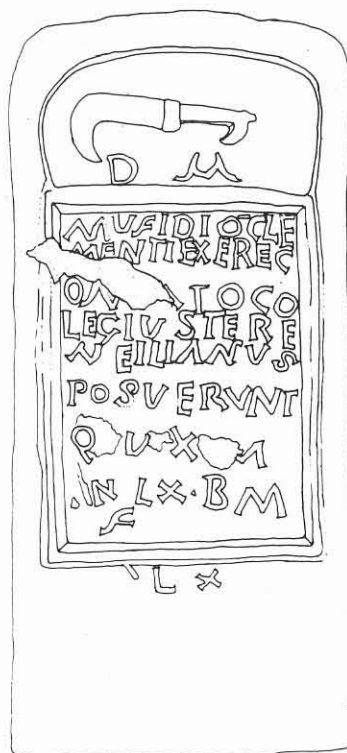 D M
MUFIDIOCLE
MENTIEXEREC
ON IOCO
LEGIUSTERE
NEILIANUS
POSVERUNT
Q U X
LX·BM
F
LX